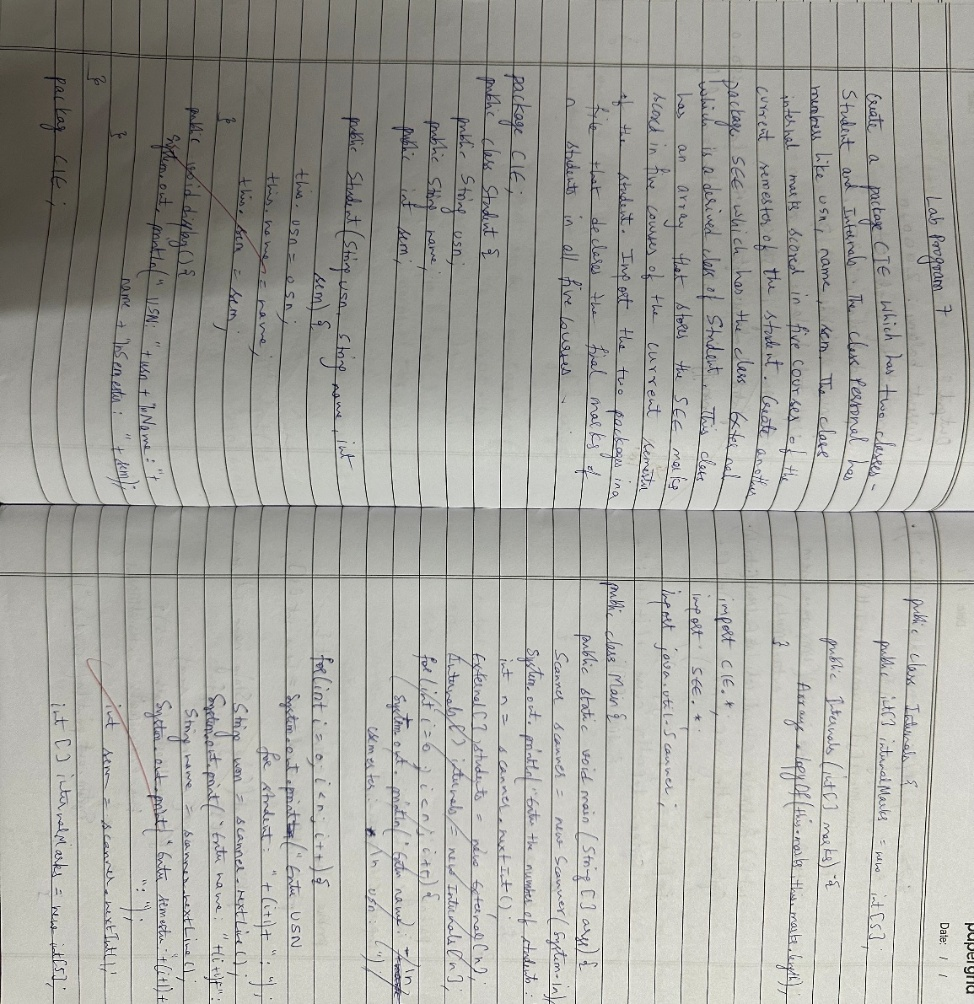 Lab Program 7
Create a package CIE which has two classes -
Student and Internals. The class Personal has
members like usn, name, sem. The class
internal marks scored in five courses of the
current semester of the student. Create another
package SEE which has the class External
which is a derived class of Student. This class
has an array that stores the SEE marks
scored in five courses of the current semester
of the student. Import the two packages in a
file that declares the final marks of
n students in all five courses.
package CIE;
public class Student {
public String usn;
public String name;
public int sem;
public Student (String usn, String name, int
sem) {
this.usn = usn;
this.name = name;
this.sem = sem;
}
public void display() {
System.out.println(" USN: " + usn + "\nName: " +
name + "\nSemester: " + sem);
}
}
packag CIE;
papergrid
Date: / /
public class Internals {
public int[] internalMarks = new int[5];
public Internals (int[] marks) {
Arrays.copyOf(this.marks, this.marks.length);
}
import CIE.*;
import SEE.*
import java.util.Scanner;
public class Main {
public static void main (String [] args) {
Scanner scanner = new Scanner (System.in);
System.out.println("Enter the number of students:
int n = scanner.nextInt();
External[] students = new External[n];
Internals[] internals = new Internals[n];
for (int i = 0; i < n; i++) {
System.out.println("Enter name: \n
semester: \n usn: ");
for (int i = 0; i < n; i++) {
System.out.print("Enter USN
for student: " + (i+1) + ": ");
String usn = scanner.nextLine();
System.out.print("Enter name: " + (i+1)+":
String name = scanner.nextLine();
System.out.print("Enter semester " + (i+1) +
": ");
int sem = scanner.nextInt();
int [] internalMarks = new int[5];